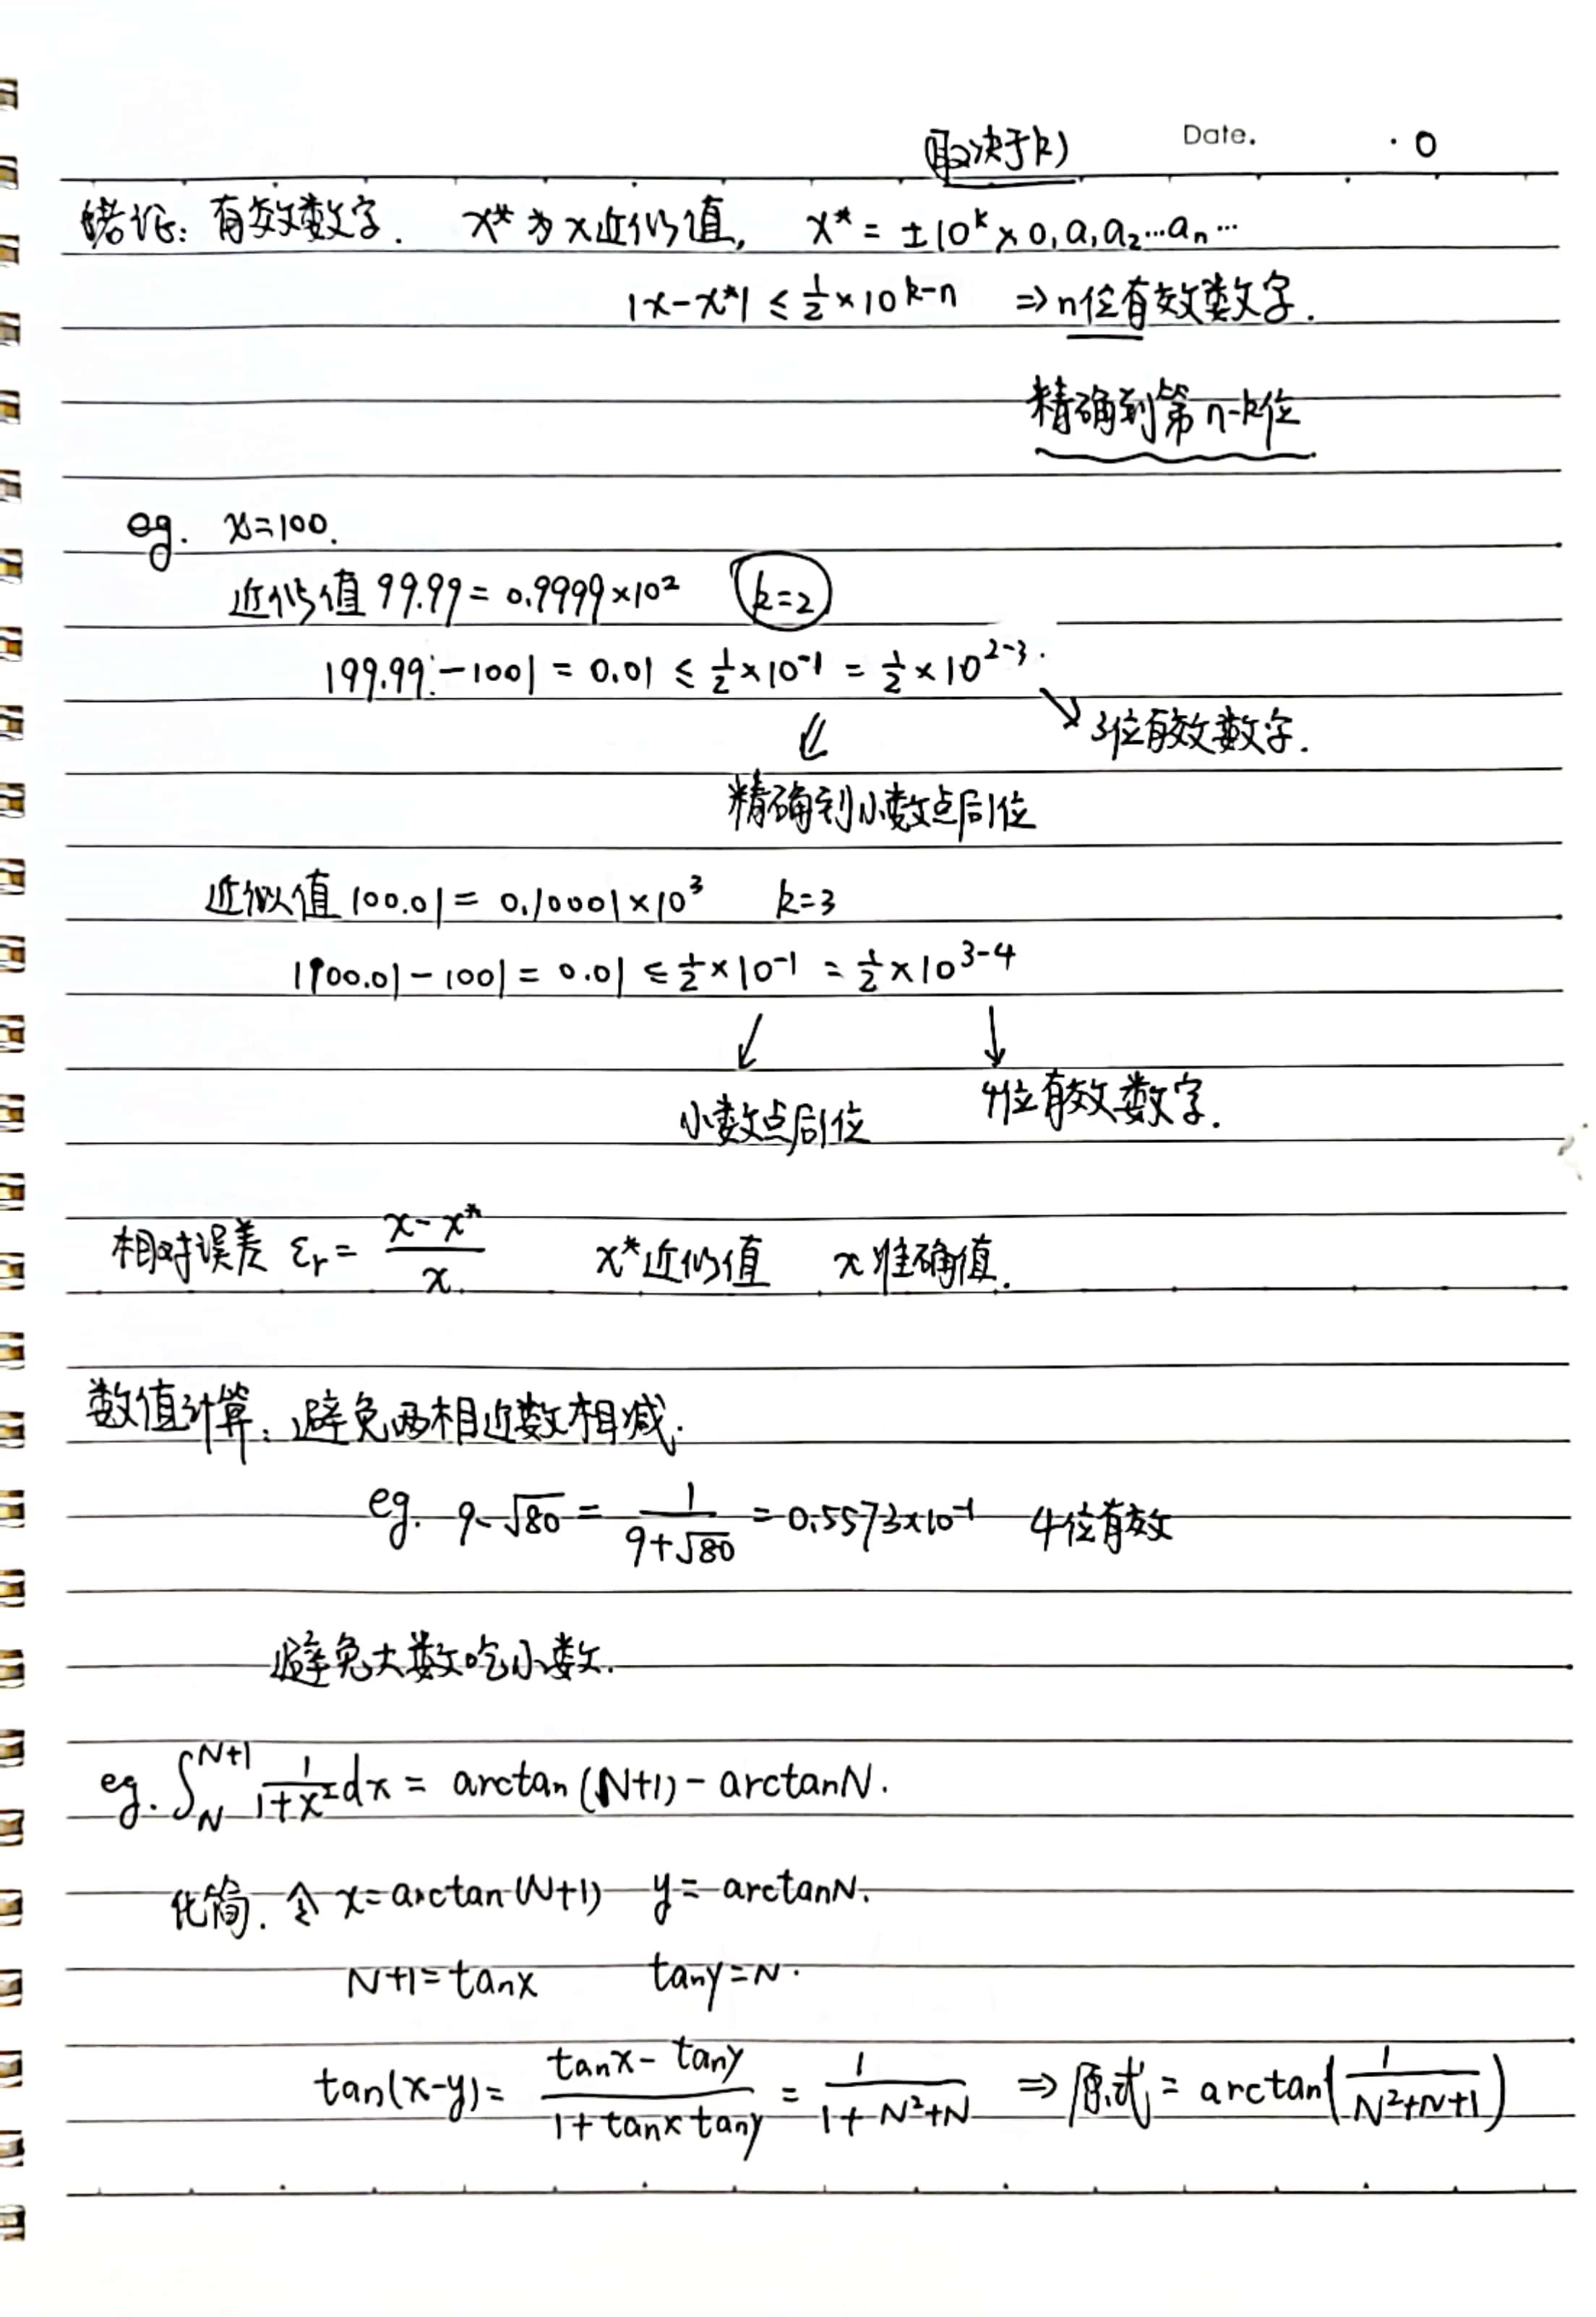 (取决于k) Date. · 0
绪论: 有效数字. x* 为 x 近似值, x* = ±10^k × 0.a₁a₂…aₙ…
|x-x*| ≤ 1/2 × 10^(k-n) ⇒ n位有效数字.
精确到第 n-k位
eg. x=100.
近似值 99.99 = 0.9999×10² k=2
|99.99-100| = 0.01 ≤ 1/2 × 10^(-1) = 1/2 × 10^(2-3).
3位有效数字.
精确到小数点后1位
近似值 100.01 = 0.10001×10³ k=3
|100.01-100| = 0.01 ≤ 1/2 × 10^(-1) = 1/2 × 10^(3-4)
小数点后1位 4位有效数字.
相对误差 εr = (x-x*)/x x*近似值 x准确值.
数值计算: 避免两相近数相减.
eg. 9-√80 = 1/(9+√80) = 0.5573×10^(-1) 4位有效
避免大数吃小数.
eg. ∫_N^(N+1) 1/(1+x²) dx = arctan(N+1) - arctanN.
化简. 令 x=arctan(N+1) y=arctanN.
N+1=tanx tany=N.
tan(x-y) = (tanx-tany)/(1+tanxtany) = 1/(1+N²+N) ⇒ 原式 = arctan(1/(N²+N+1))